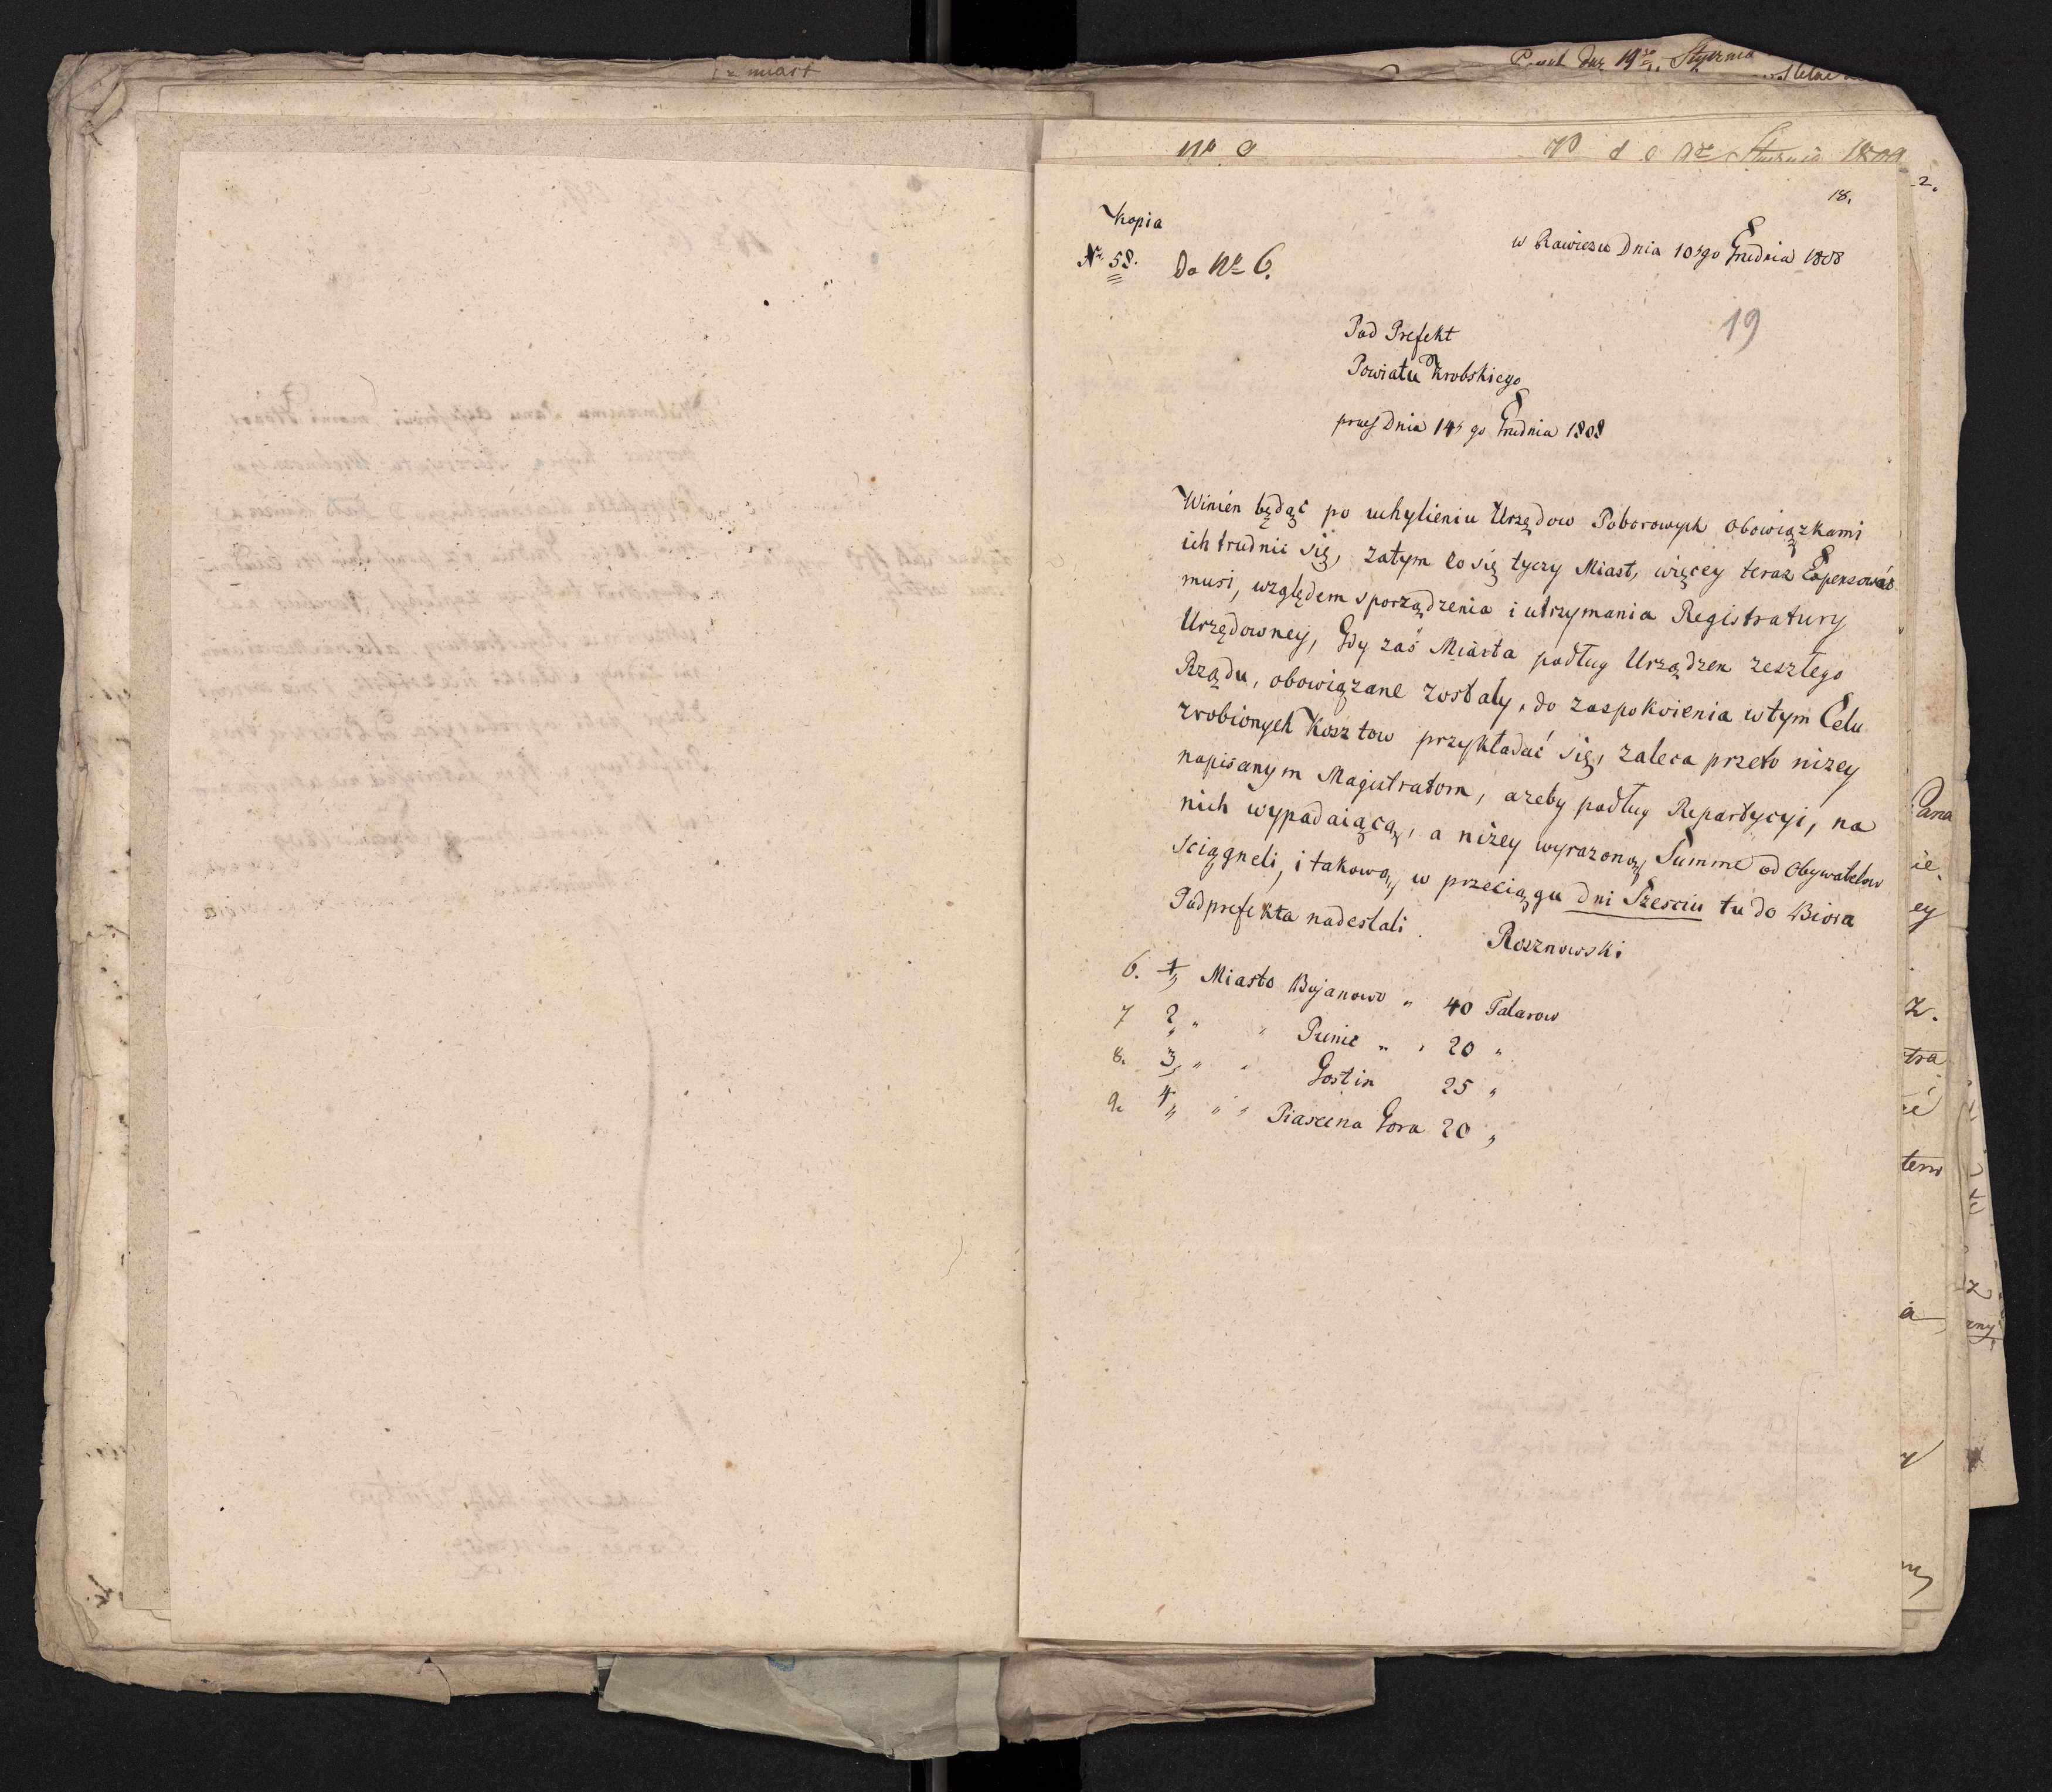 miast
Stycznia
18.
2.
Kopia
w Rawiczu Dnia 10go Grudnia 1808
Nr. 58. Do Nr 6.
19
Pod Prefekt
Powiatu Krobskiego
praes Dnia 14go Grudnia 1808
Winien będąc po uchylieniu Urzędow Poborowych obowiązkami
ich trudnic się, zatym co się tyczy Miast, więcey teraz Expensować
musi, względem sporządzenia i utrzymania Registratury
Urzędowney, Gdy zaś Miasta podług Urządzen zeszłego
Rządu, obowiązane zostały, do zaspokoienia w tym Celu
zrobionych Kosztow przykładać się, zaleca przeto nizey
napisanym Magistratom, azeby podług Repartycyi, na
nich wypadaiącą, a niżey wyrazoną Summe od Obywatelow
sciągneli, i takową w przeciągu dni Szesciu tu do Biora
Podprefekta nadesłali.
Rosznowski
6. 1, Miasto Bojanowo " 40 Talarow
7 2 " " Punic " " 20 "
8. 3, " " Gostin 25 "
9. 4 " " " Piasecna Gora 20 "